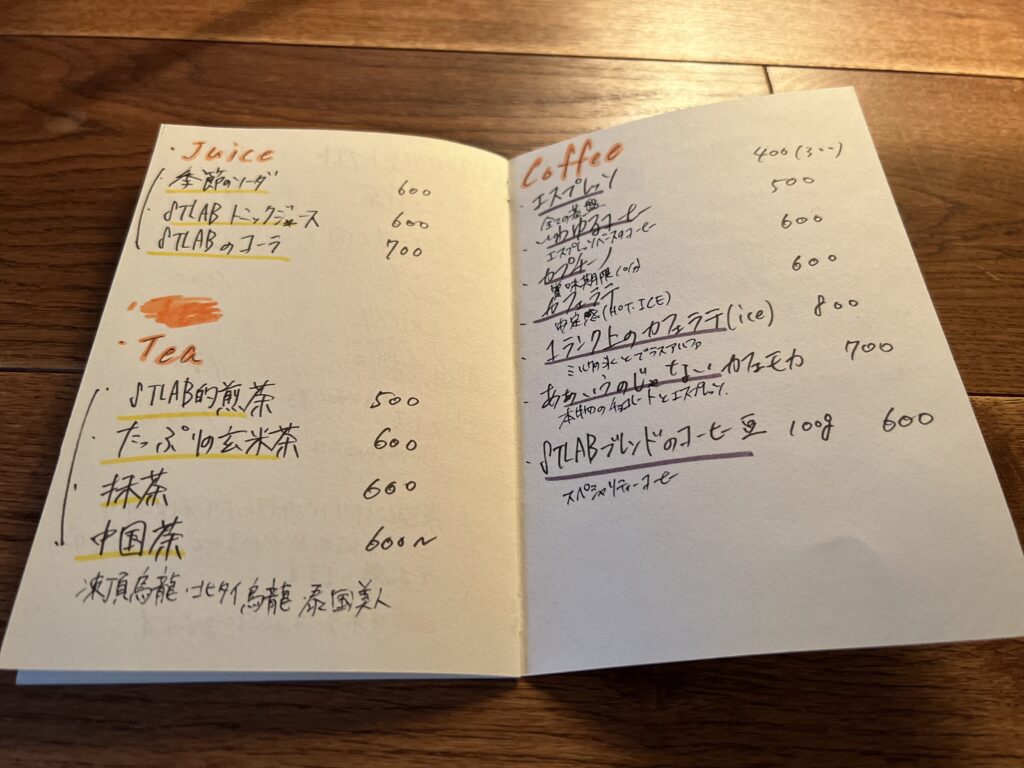 ・Juice
・季節のソーダ 600
・STLAB トニックジュース 600
・STLABのコーラ 700
・Tea
・STLAB的煎茶 500
・たっぷりの玄米茶 600
・抹茶 600
・中国茶 600〜
凍頂烏龍・北タイ烏龍・泰国美人
Coffee
・エスプレッソ 400(300)
全ての基盤
・いわゆるコーヒー 500
エスプレッソベースのコーヒー
・カプチーノ 600
賞味期限10分
・カフェラテ 600
安定感(HOT・ICE)
・1ランク上のカフェラテ(ice) 800
ミルク氷とプラスアルファ
・ああいうのじゃないカフェモカ 700
本物のチョコレートとエスプレッソ.
・STLABブレンドのコーヒー豆 100g 600
スペシャリティーコーヒー